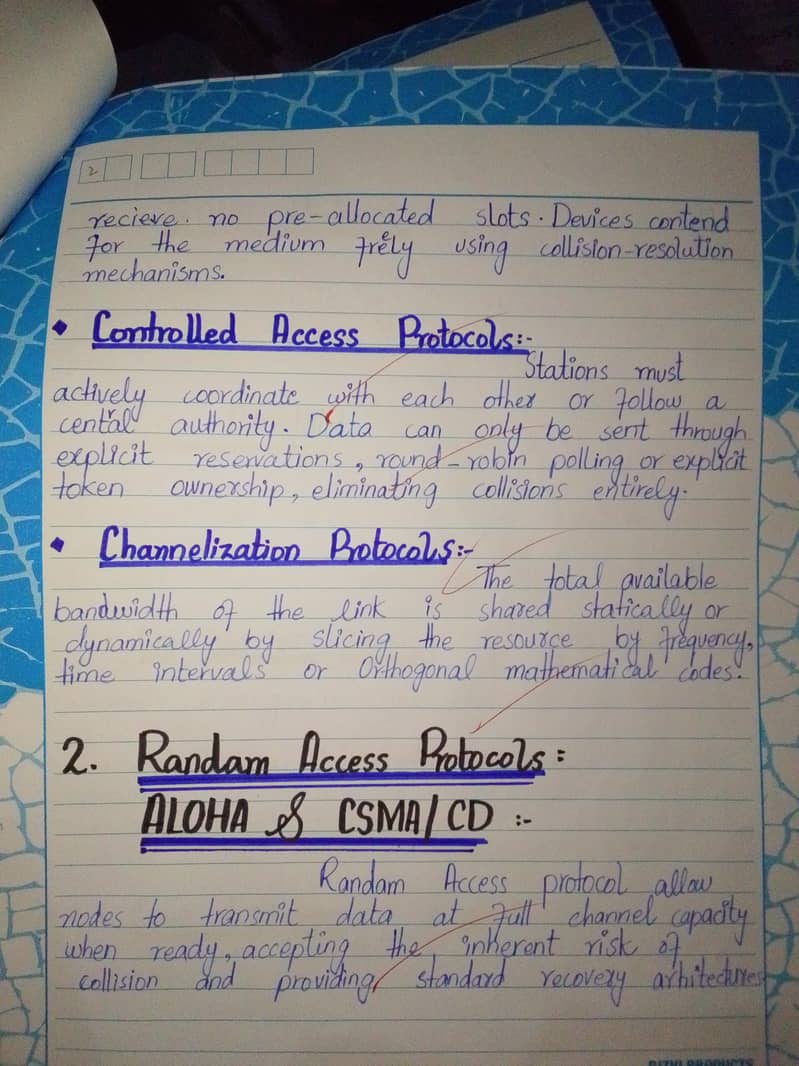 2
recieve. no pre-allocated slots. Devices contend
for the medium frely using collision-resolution
mechanisms.
• Controlled Access Protocols:-
Stations must
actively coordinate with each other or follow a
central authority. Data can only be sent through
explicit reservations, round-robin polling or explicit
token ownership, eliminating collisions entirely.
• Channelization Protocols:-
The total available
bandwidth of the link is shared statically or
dynamically by slicing the resource by frequency,
time intervals or Orthogonal mathematical codes.
2. Randam Access Protocols:
ALOHA & CSMA/CD :-
Randam Access protocol allow
nodes to transmit data at full channel capacity
when ready, accepting the inherent risk of
collision and providing standard recovery arhitectures
PRODUCTS